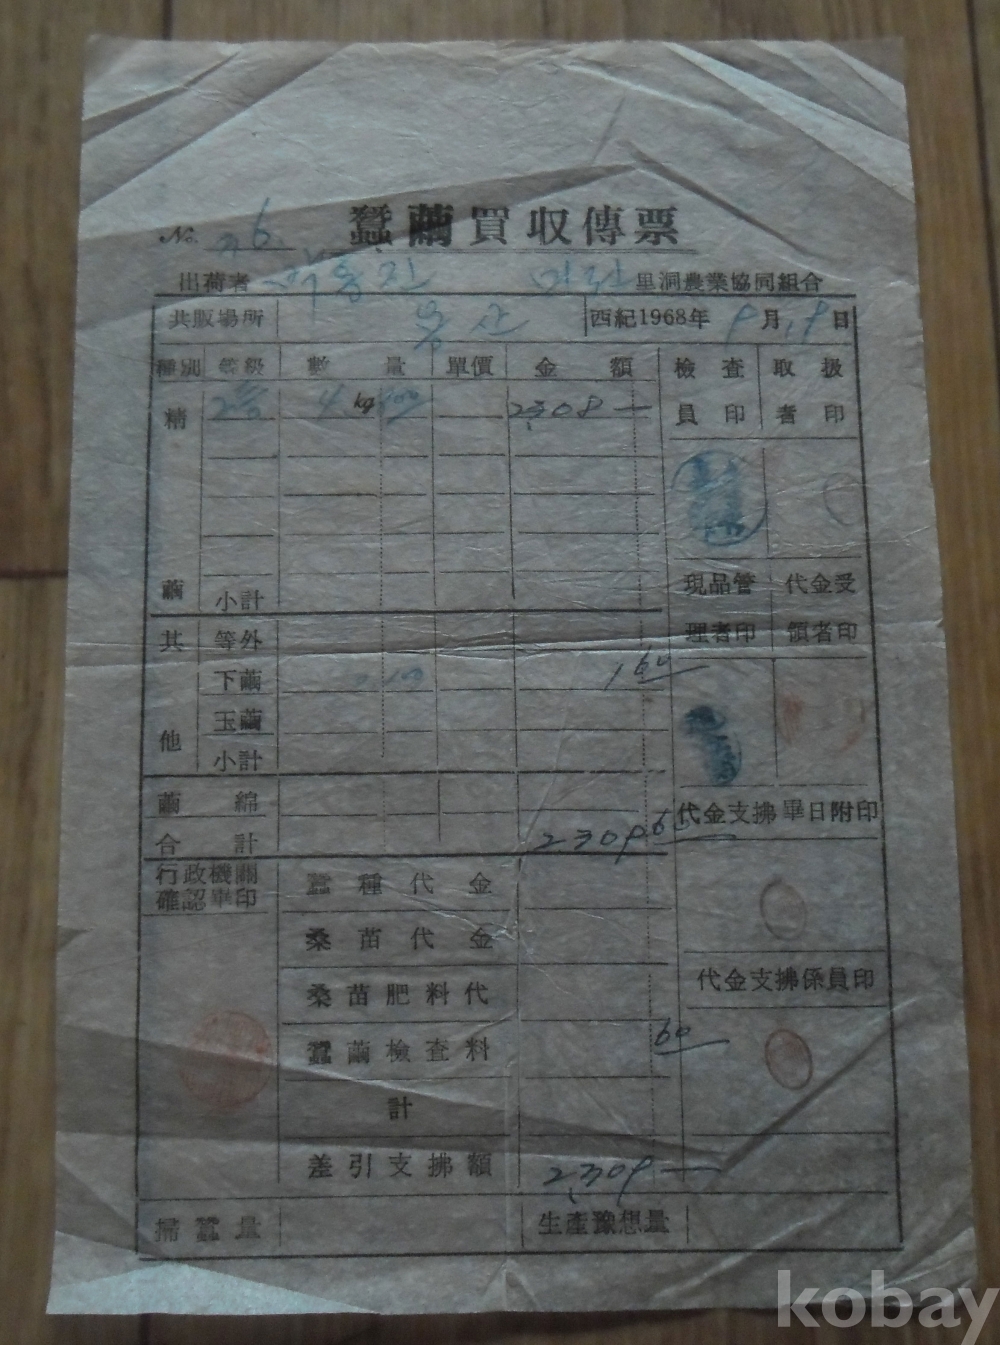 蠶繭買収傳票
No. 76
出荷者 里洞農業協同組合
共販場所 용산 西紀1968年 9月 19日
種別 等級 數量 單價 金額 檢査員印 取扱者印
精繭 2등 4kg 400 2,308—
小計
現品管理者印 代金受領者印
其他 等外
下繭 100 1 60
玉繭
小計
繭綿
合計 2309 60
代金支拂畢日附印
行政機關確認畢印
蠶種代金
桑苗代金
代金支拂係員印
桑苗肥料代
蠶繭檢査料 60
計
差引支拂額 2,309—
掃蠶量 生產豫想量
kobay